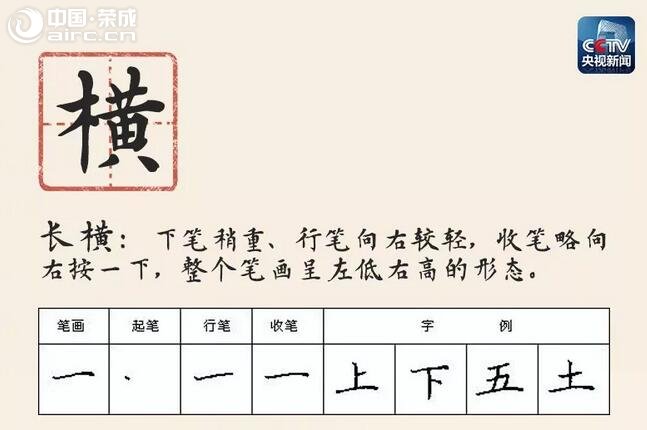 中国·荣成
airc.cn
CCTV
央视新闻
横
长横：下笔稍重、行笔向右较轻，收笔略向
右按一下，整个笔画呈左低右高的形态。
笔画 起笔 行笔 收笔 字 例
一 丶 一 一 上 下 五 土